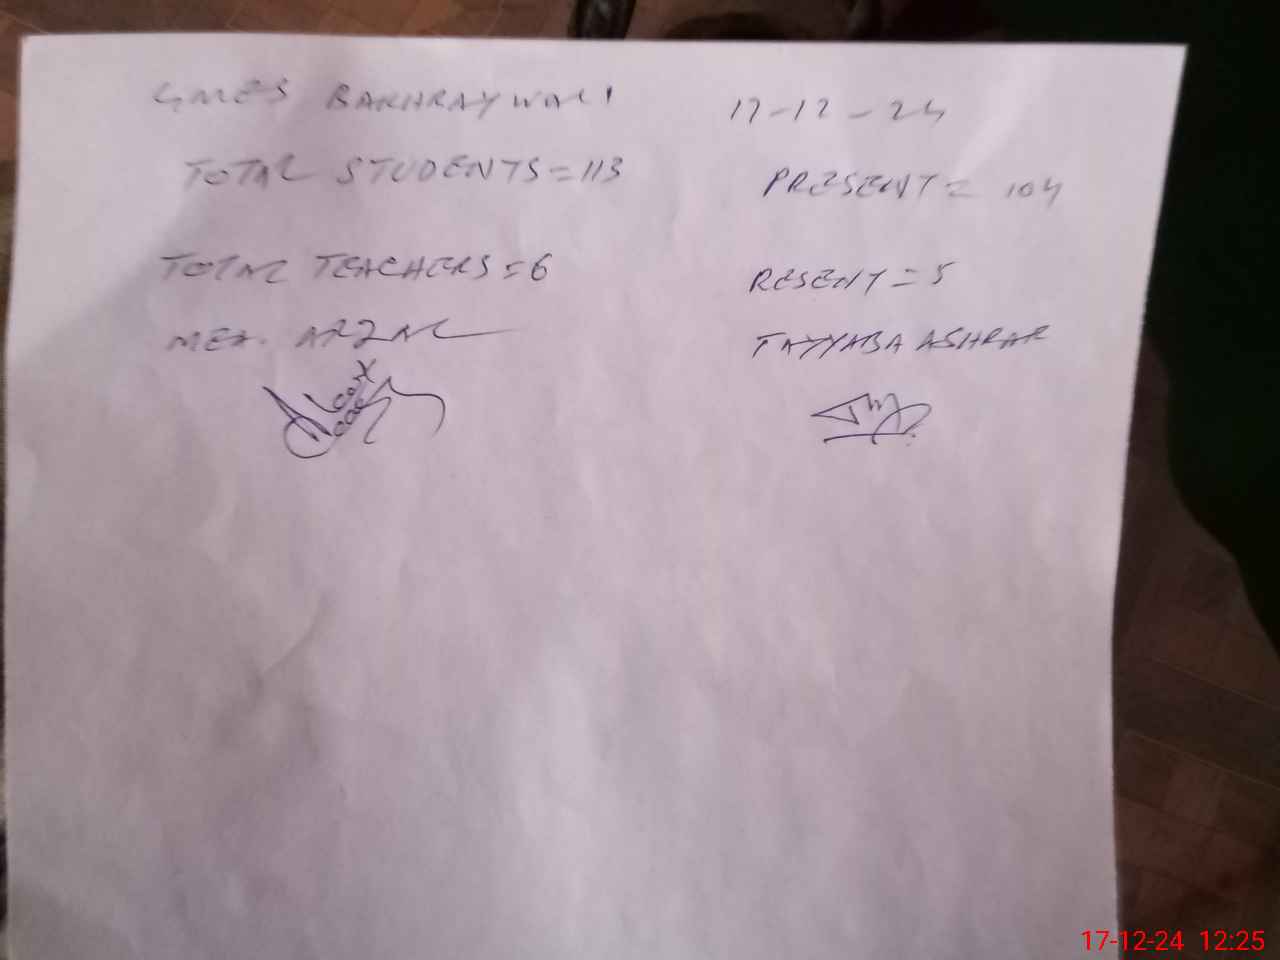 GMES BAKHRAYWALI 17-12-24
TOTAL STUDENTS=113 PRESENT= 104
TOTAL TEACHERS=6 RESENT=5
TAYYABA ASHRAF
17-12-24 12:25